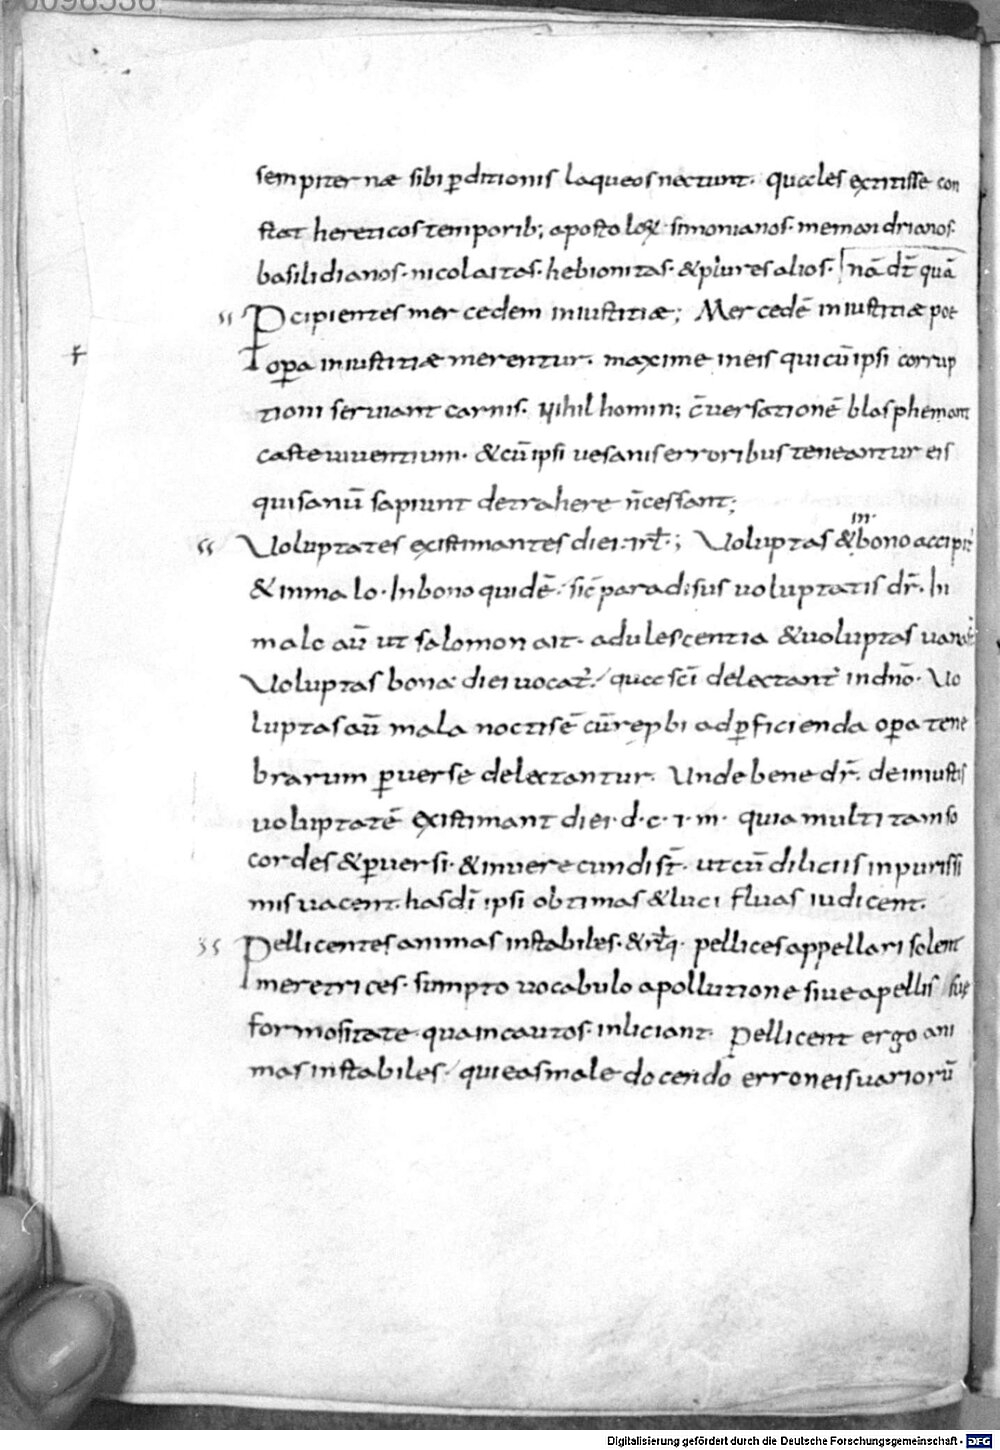 sempiternæ sibi ꝑditionis laqueos nectunt. quales extitisse con
stat hereticos temporib; apostoloꝝ. simonianos. memandrianos.
basilidianos. nicolaitas. hebionitas. & plures alios. nā dr̄ quā
Pcipientes mercedem iniustitiæ; Mercedē iniustitiæ pot
opa iniustitiæ merentur. maxime in eis qui cū ipsi corrup
tioni seruiant carnis. Nihil homin; c̄uersationē blasphemant
caste uiuentium. & cū ipsi uesanis erroribus teneantur eis
qui sanū sapiunt detrahere n̄ cessant;
Uoluptates existimantes diei. rł.; Uoluptas & in bono accipit̄
& in malo. In bono quidē. sic̄ paradisus uoluptatis dr̄. In
malo aū ut salomon ait. adulescentia & uoluptas uana st̄
Uoluptas bona diei uocat̄. qua sc̄i delectant̄ in dn̄o. Uo
luptas aū mala noctis ē cū repbi ad ꝑficienda opa tene
brarum ꝑuerse delectantur. Unde bene dr̄. de iniustis
uoluptatē existimant diei. d. c. i. m. quia multi tam so
cordes & ꝑuersi. & inuerecundi st̄. ut cū diliciis inpurissi
mis uacent. has dī ipsi obtimas & luci fluas iudicent.
Pellicentes animas instabiles. & rłq. pellices appellari solent
meretrices. sumpto uocabulo a pollutione siue a pellis suę
formositate. qua incautos inliciant. Pellicent ergo ani
mas instabiles. qui eas male docendo erroneis uariorū
0098538
Digitalisierung gefördert durch die Deutsche Forschungsgemeinschaft - DFG